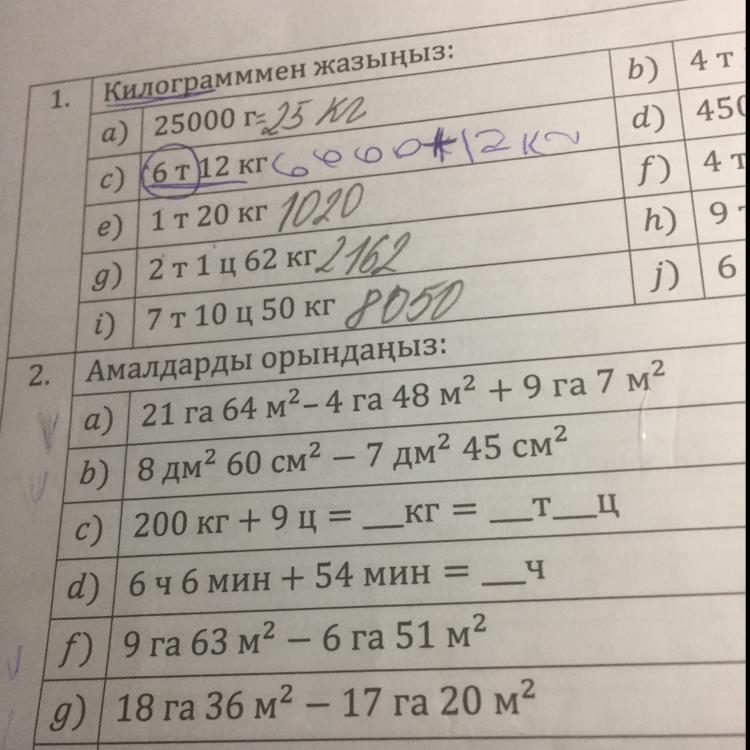 1. Килограмммен жазыңыз:
a) 25000 г=25 кг b) 4 т
c) 6 т 12 кг 6000+12 кг d) 450
e) 1 т 20 кг 1020 f) 4 т
g) 2 т 1 ц 62 кг 2162 h) 9
i) 7 т 10 ц 50 кг 8050 j) 6
2. Амалдарды орындаңыз:
a) 21 га 64 м² – 4 га 48 м² + 9 га 7 м²
b) 8 дм² 60 см² − 7 дм² 45 см²
c) 200 кг + 9 ц = __кг = __т__ц
d) 6 ч 6 мин + 54 мин = __ч
f) 9 га 63 м² − 6 га 51 м²
g) 18 га 36 м² − 17 га 20 м²